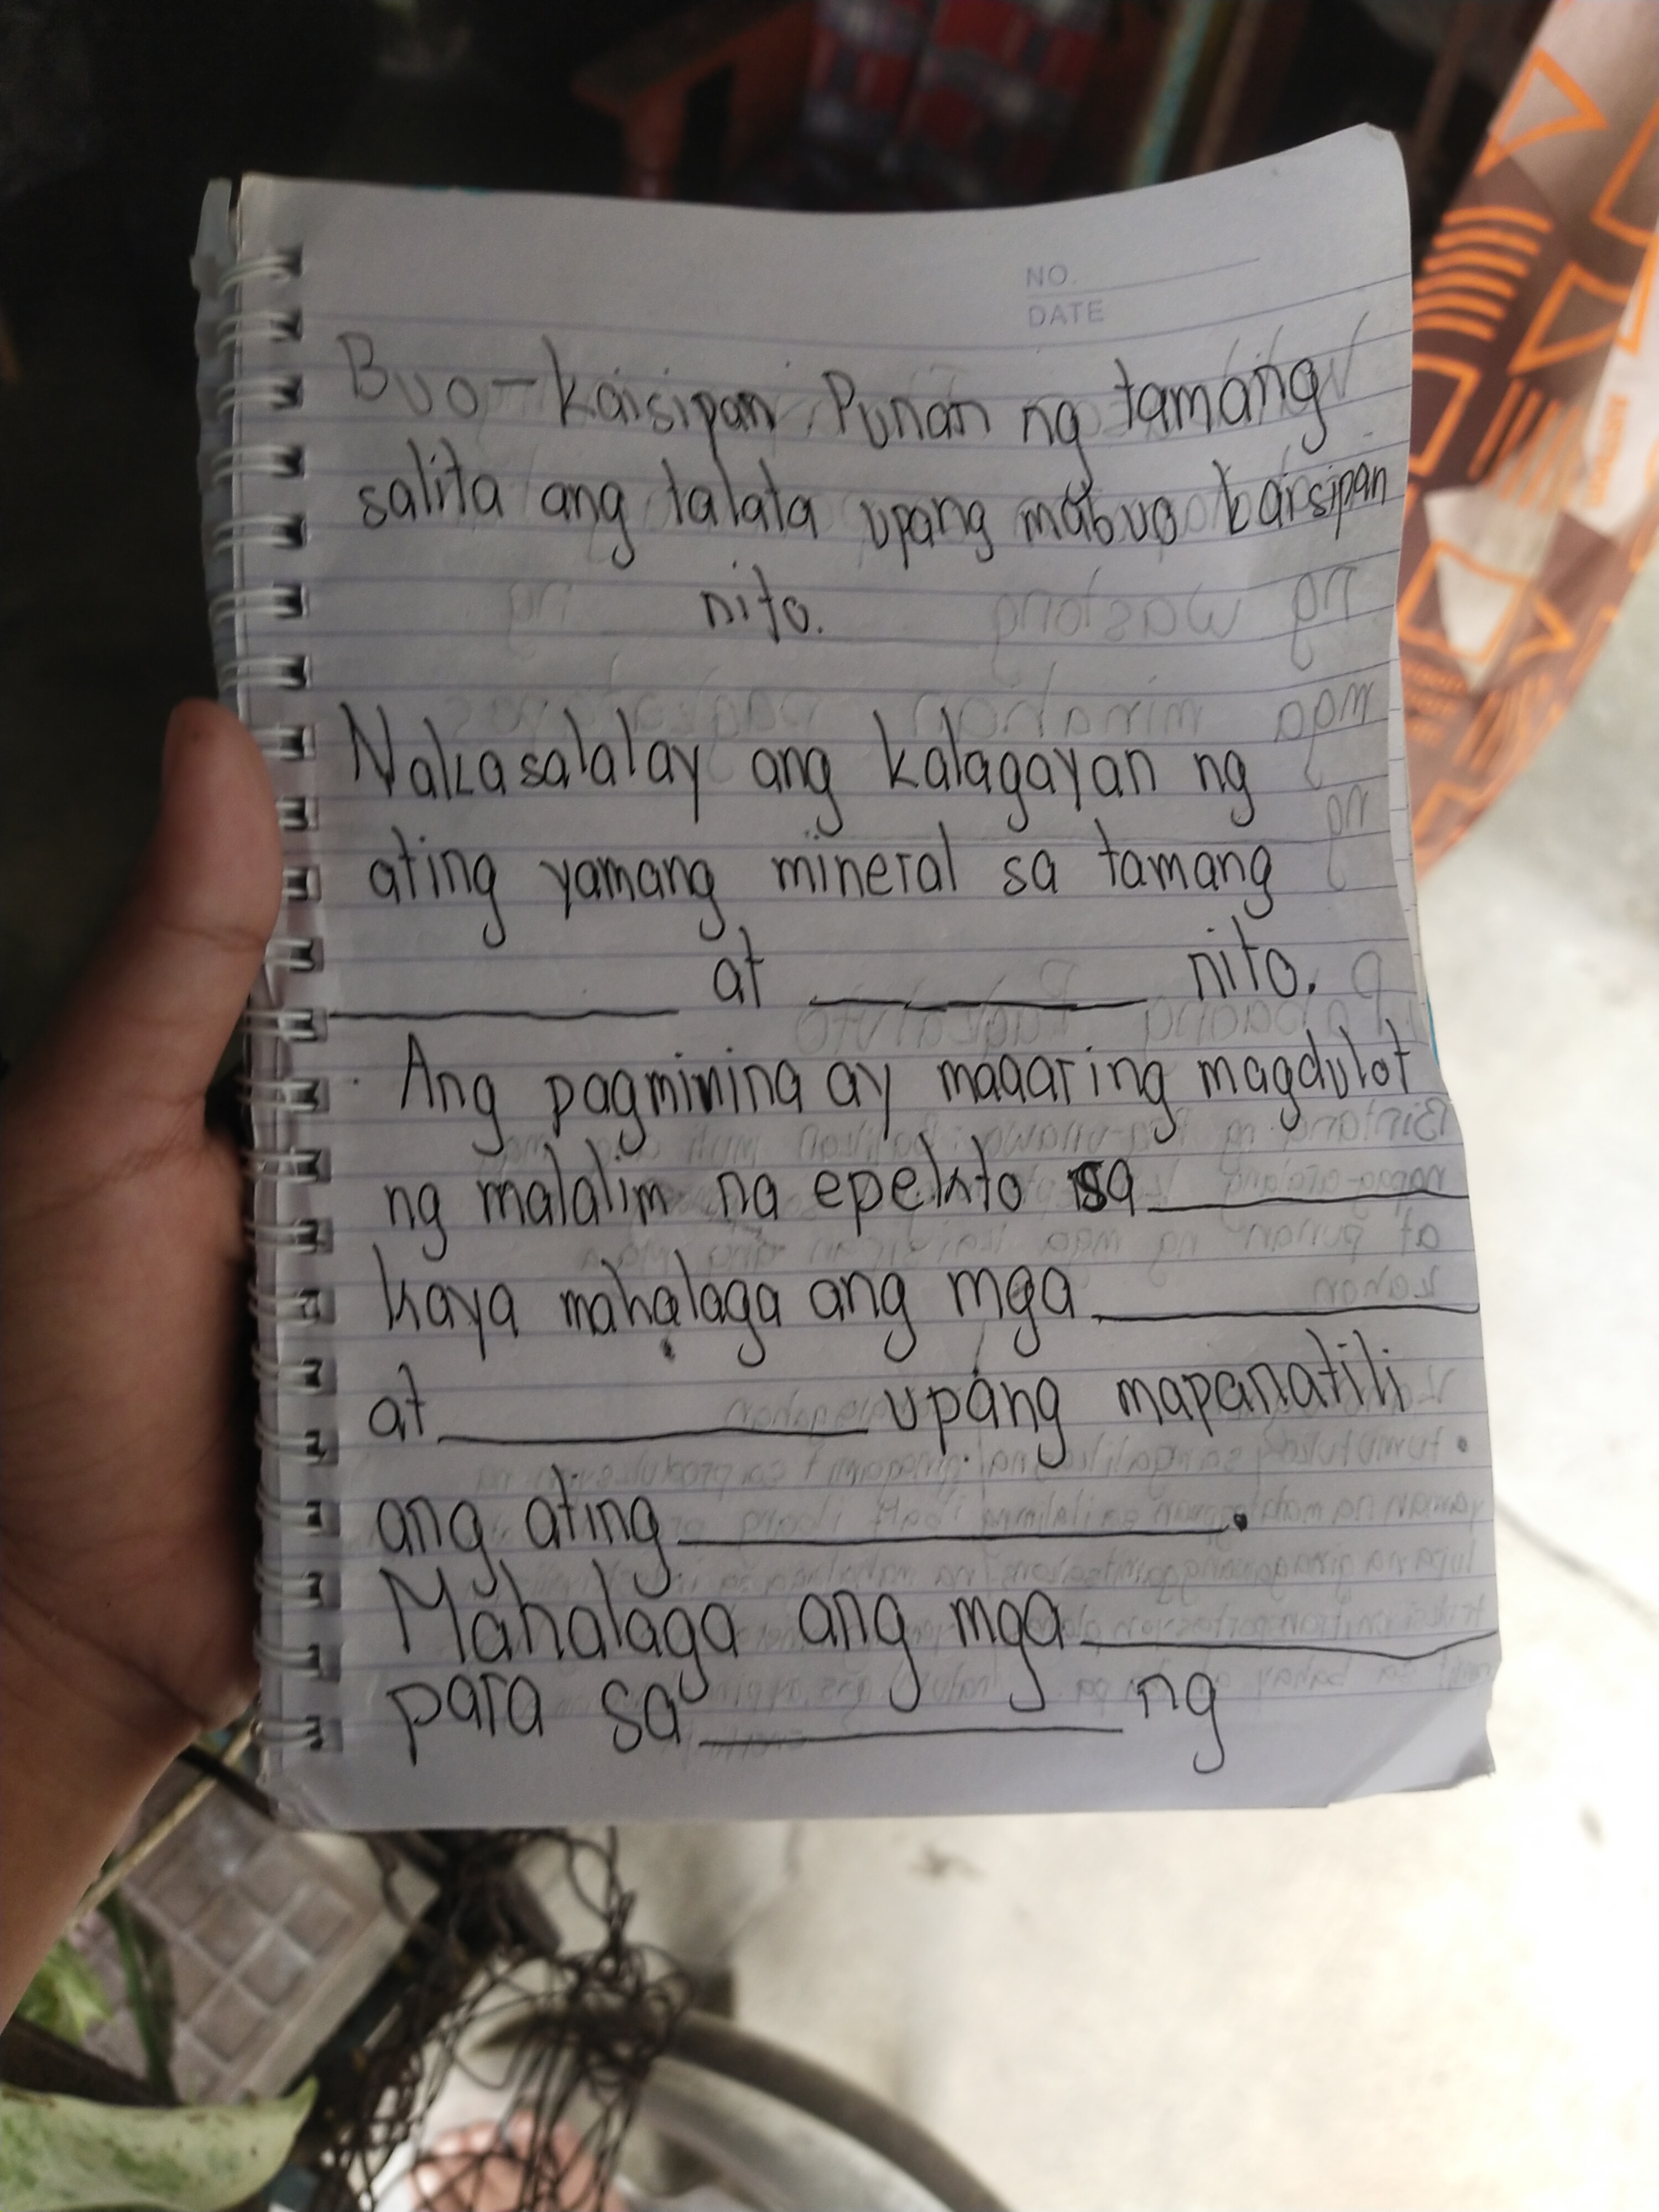 NO.
DATE
Buo-kaisipan. Punan ng tamang
salita ang talata upang mabuo kaisipan
nito.
Nakasalalay ang kalagayan ng
ating yamang mineral sa tamang
__________ at __________ nito.
Ang pagmimina ay maaaring magdulot
ng malalim na epekto sa __________
kaya mahalaga ang mga __________
at __________ upang mapanatili
ang ating __________.
Mahalaga ang mga __________
para sa __________ ng